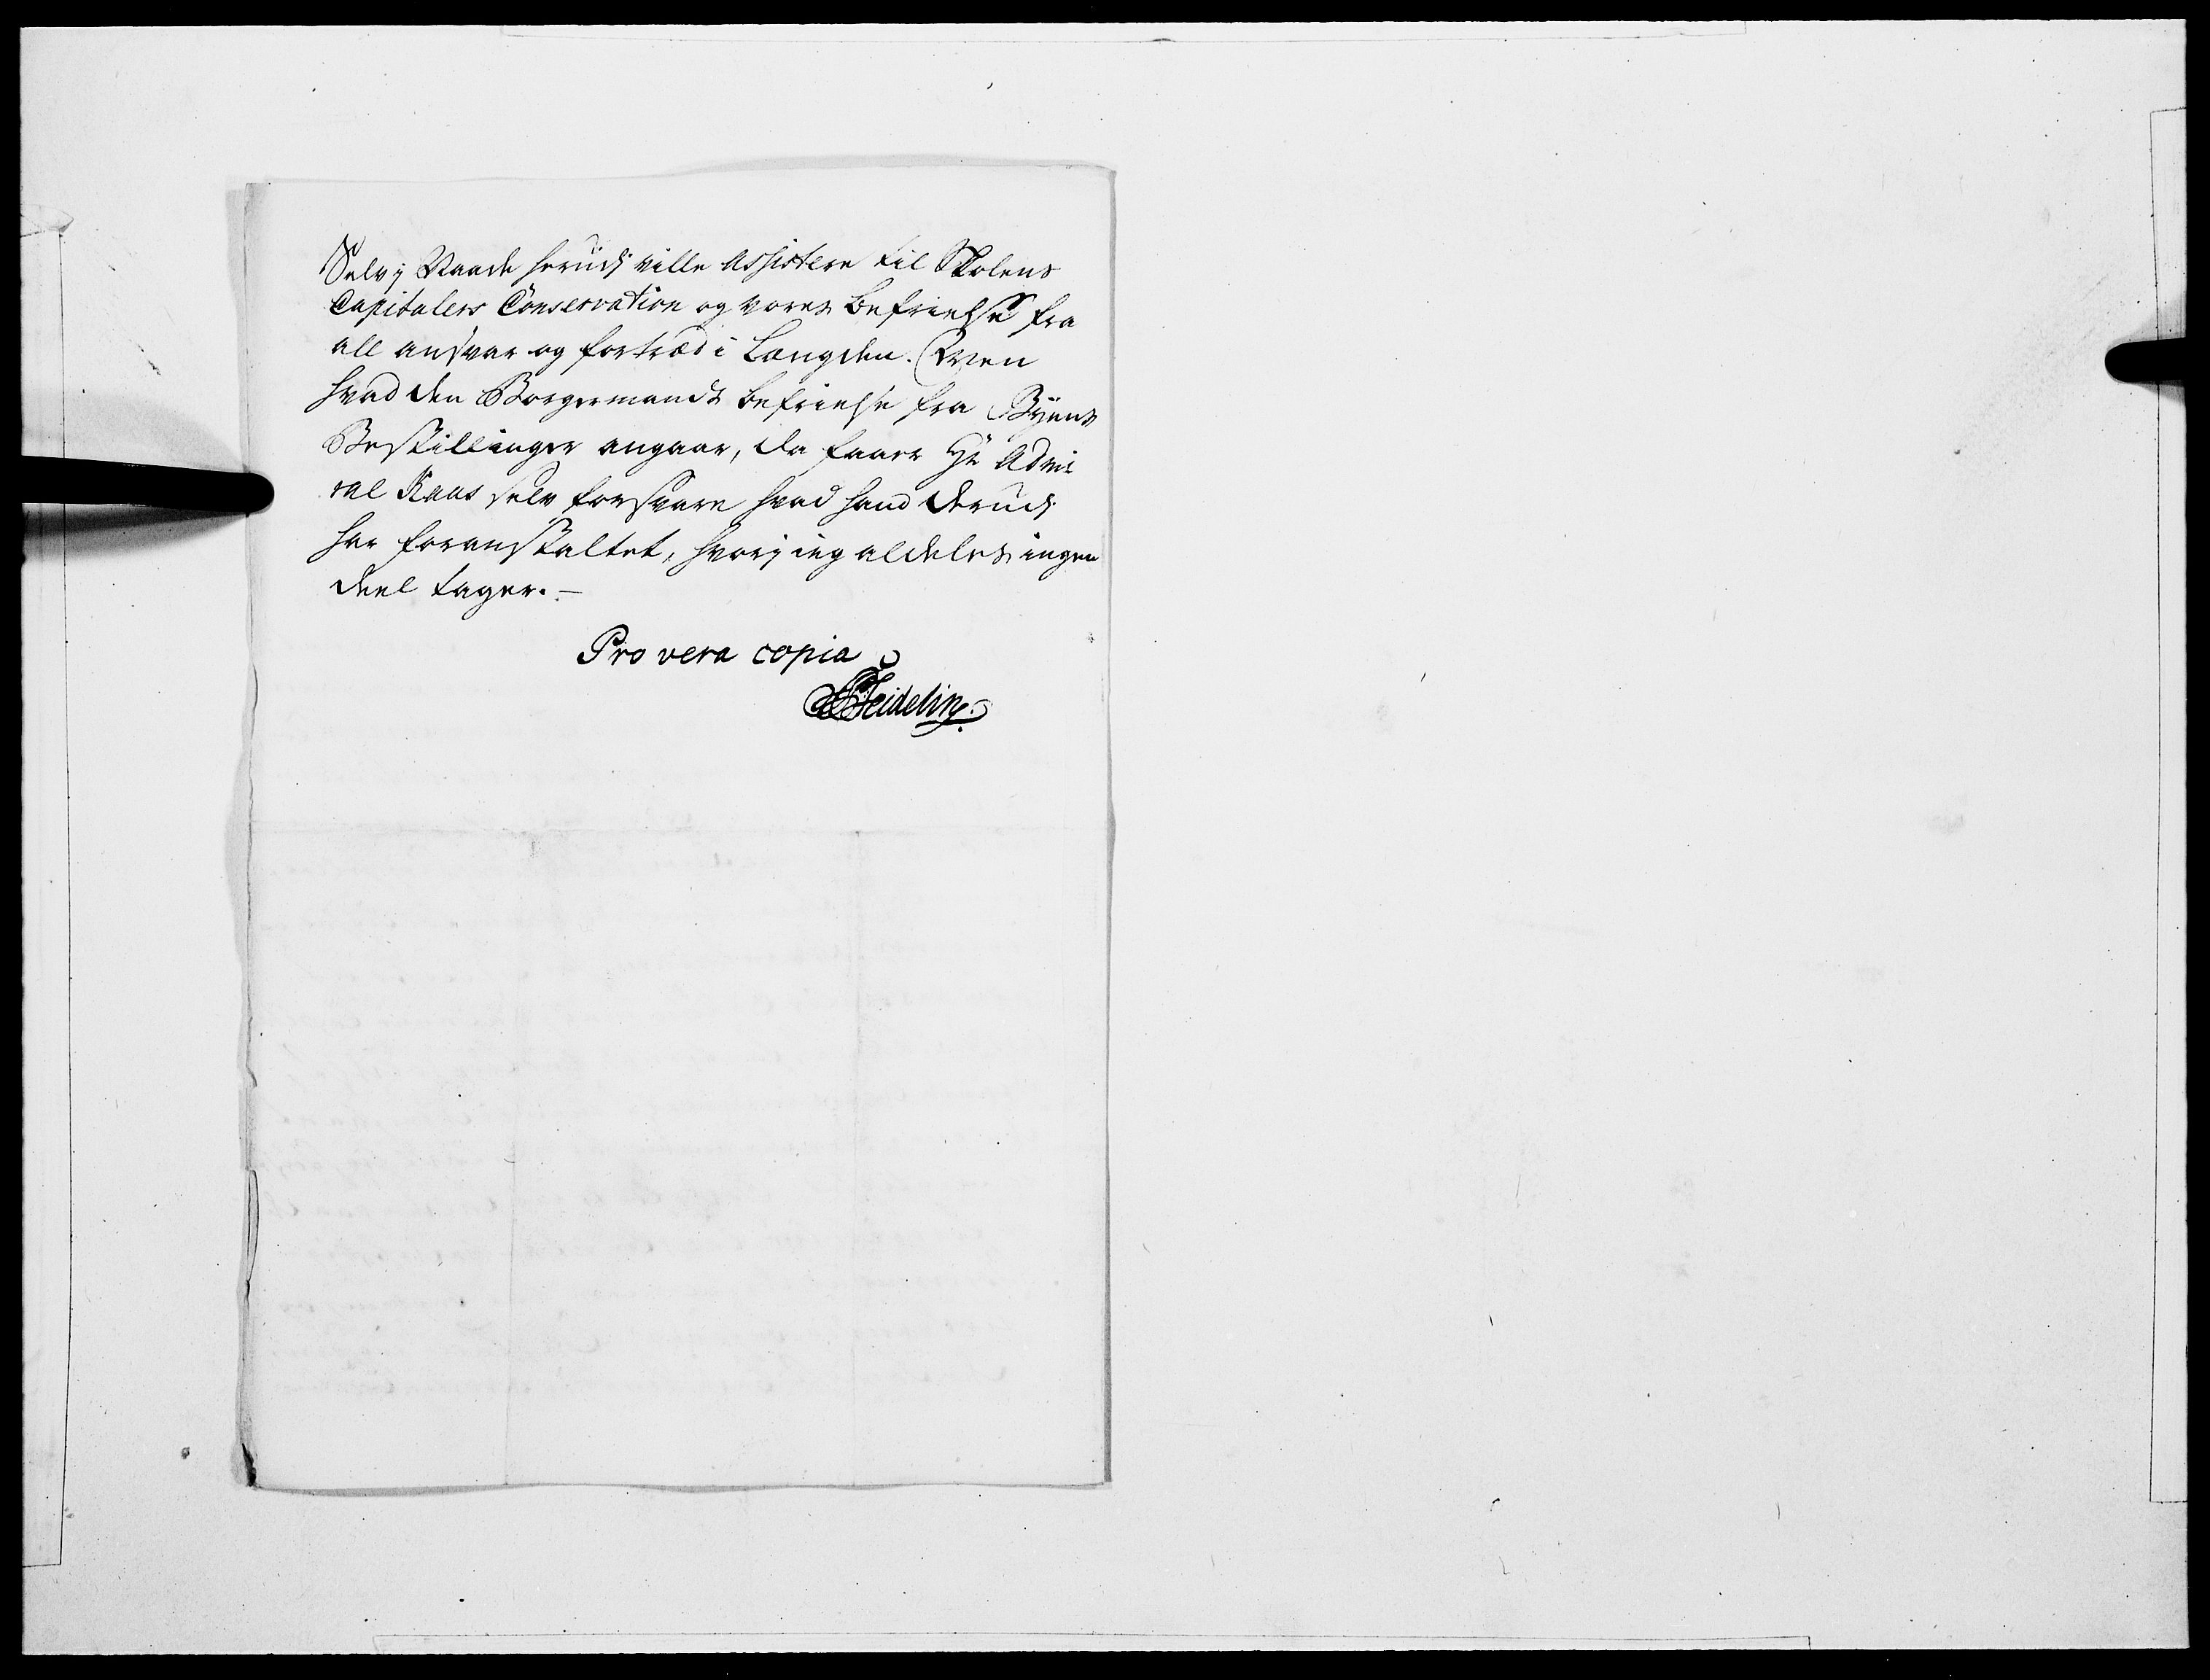 Selv j Raade herudj ville Assistere til Skolens
Capitalers Conservation og vores Befrielse fra
all ansvar og fortræd i Længden. Men
hvad den Borgermands befrielse fra Byens
Bestillinger angaar, da faaer Hr Admi
ral Kaas selv forsvare hvad hand derudj
har foranstaltet, hvorj ieg aldeles ingen
deel tager.-
Pro vera copia
Seideling.